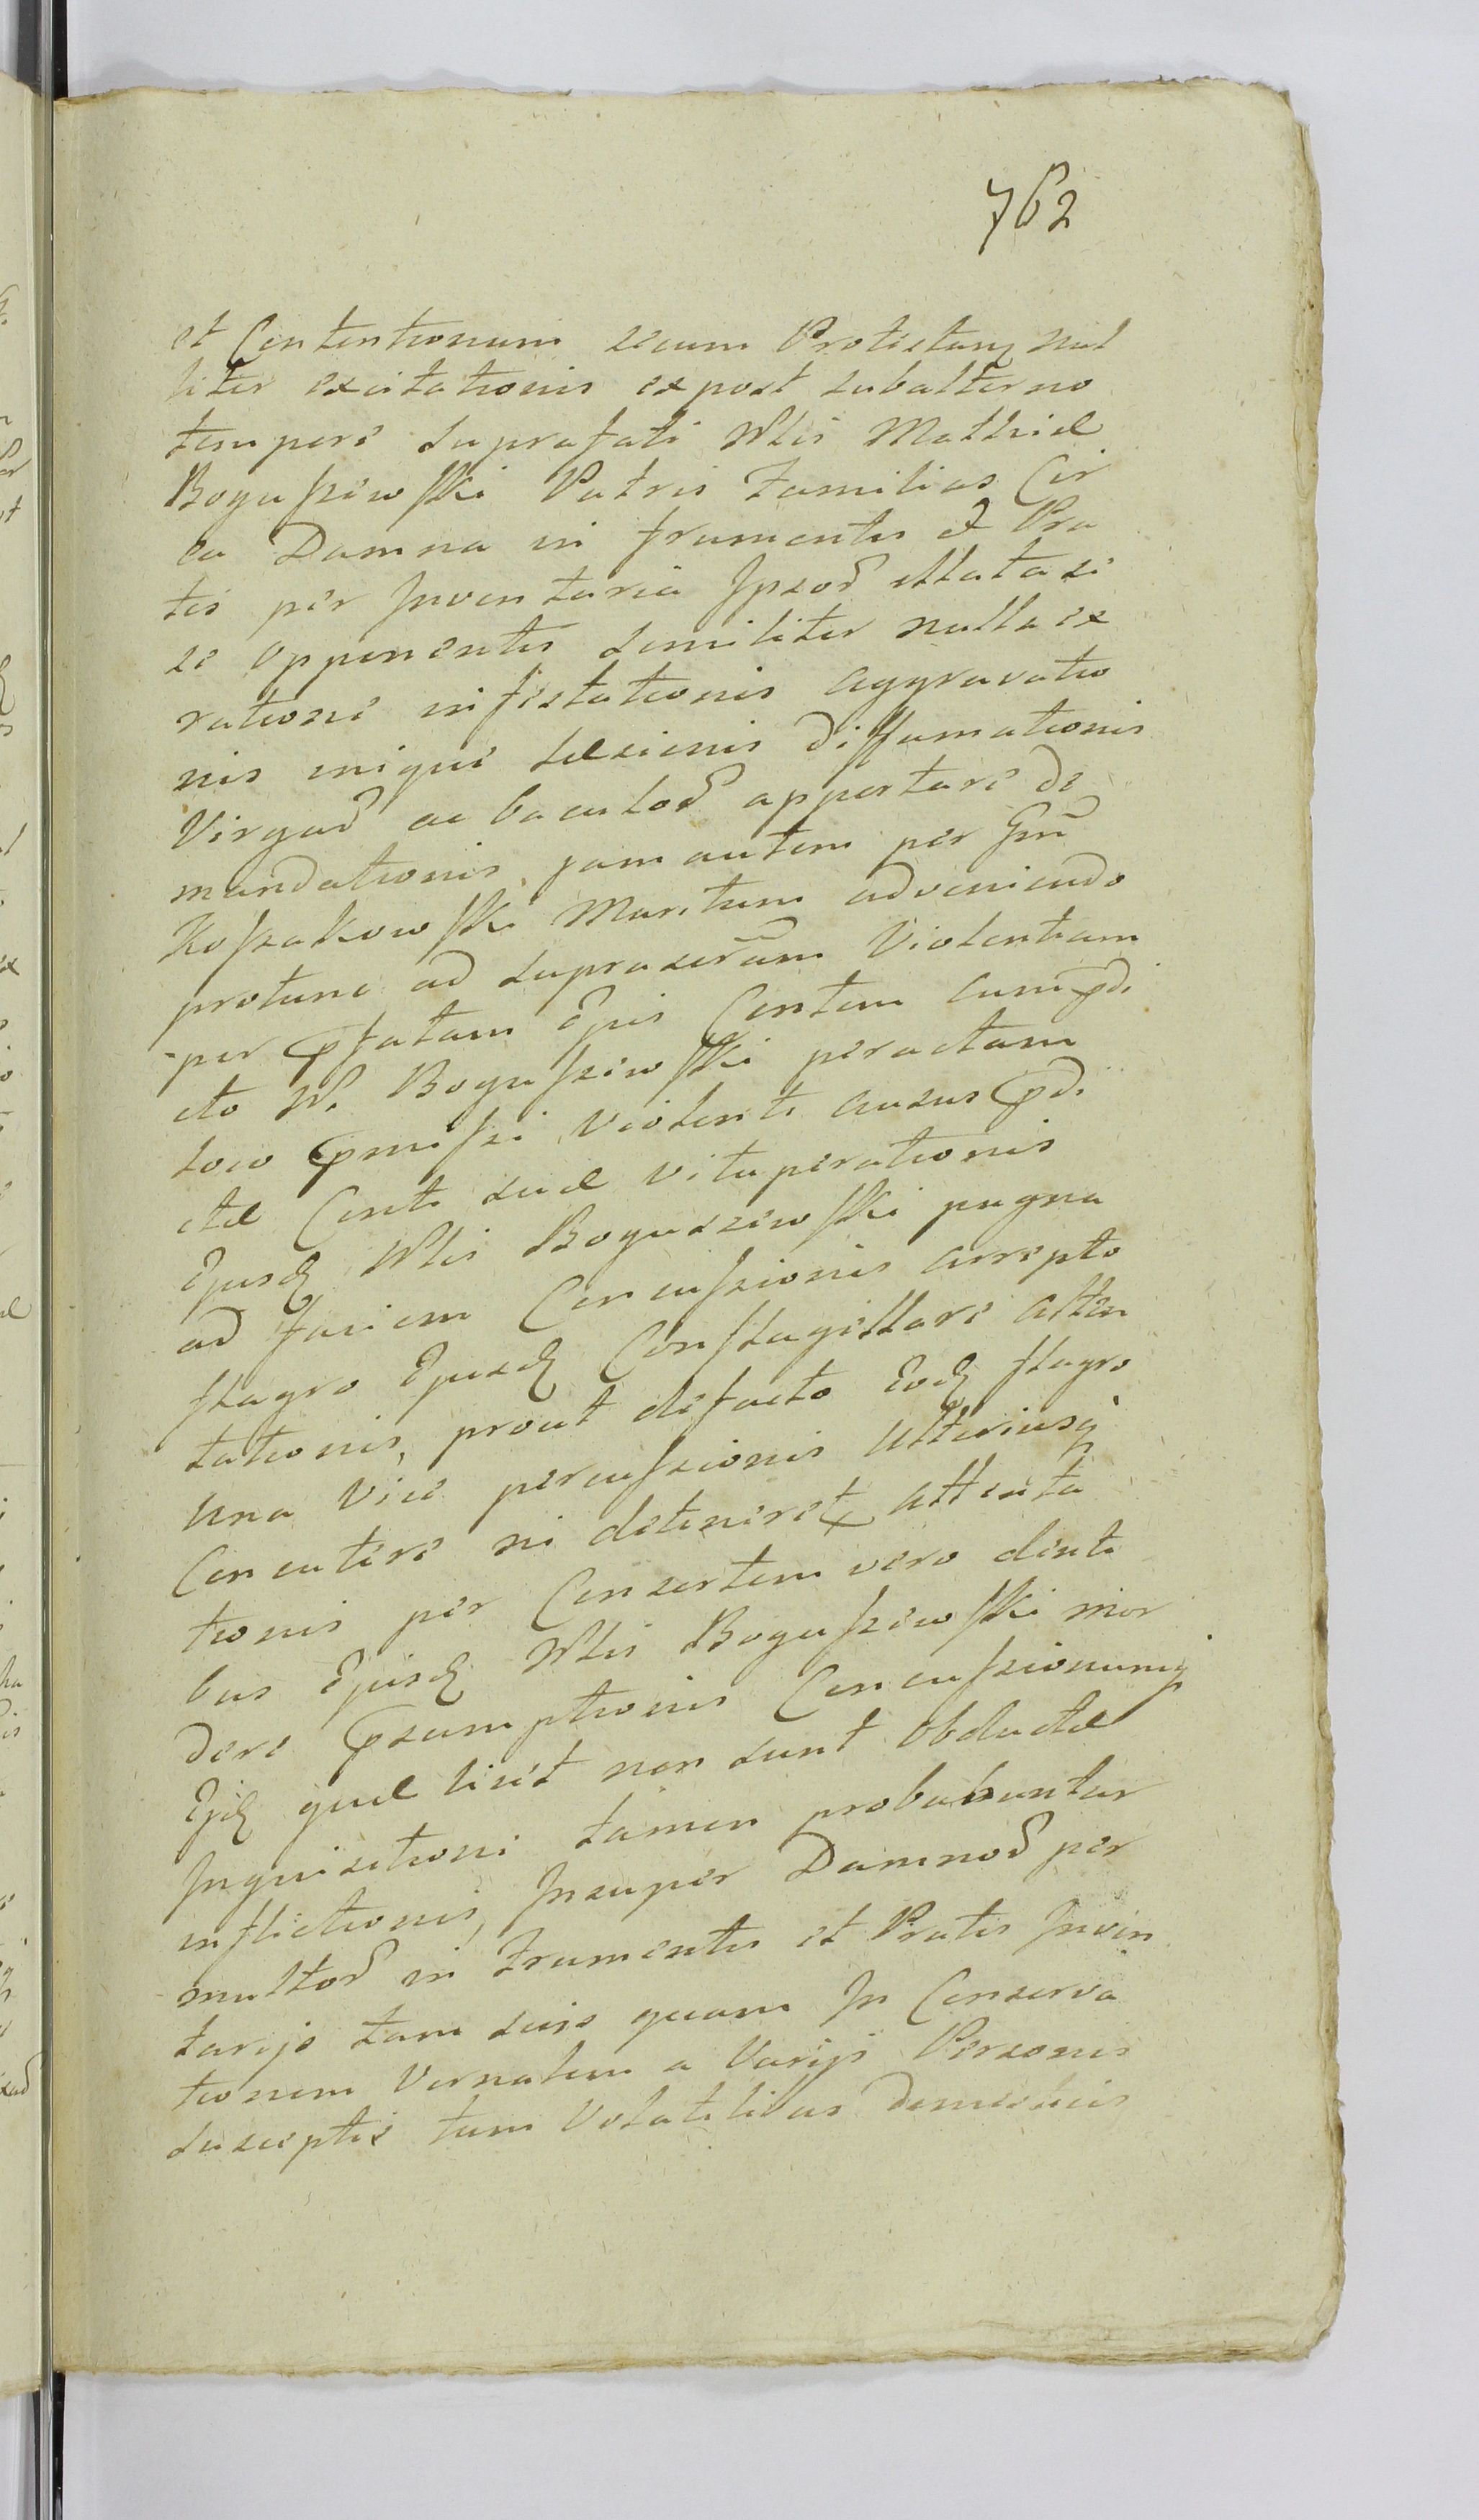 762
et Contentionum secum Protestanꝫ nul
liter excitationis expost subalterno
tempore suprafati Mtis Mathiæ
Boguſzewſki Patris Familias Cir
ca Damna in frumentis et Pra
tis per Inventaria Ipsoꝝ illata si
se opponentis similiter nulla ex
ratione infestationis aggravatio
nis inique læsionis diffamationis
Virgaꝝ ac baculoꝝ apportare de
mandationis, jam autem per Gnũ
Koſzakowſki Maritum adveniendo
protunc ad supraseri͠am Violentiam
per p̃fatam Ejus Contem cum p̃di
cto M. Boguſzewſki peractam
loco p̃miſsi violenti ausus p̃di
ctæ Contis suæ vituperationis
Ejusd Mtis Boguszewſki pugna
ad faciem Concuſsionis arrepto
flagro Ejusd Conflagellare atten
tationis, prout defacto Eod flagro
una vice percuſsionis ulteriusq
Concutere ni detineret attenta
tionis per Consortem vero denti
bus Ejusd Mtis Boguſzewſki mor
dere p̃sumptionis Concuſsionumq
Ejd quæ licet non sunt obductæ
Inquisitioni tamen probabuntur
inflictionis, Insuper Damnoꝝ per
multoꝝ in Frumentis et Pratis Inven
tarijs tam suis quam In Conserva
tionem Vernalem a Varijs Personis
susceptis tum Volatilibus domesticis